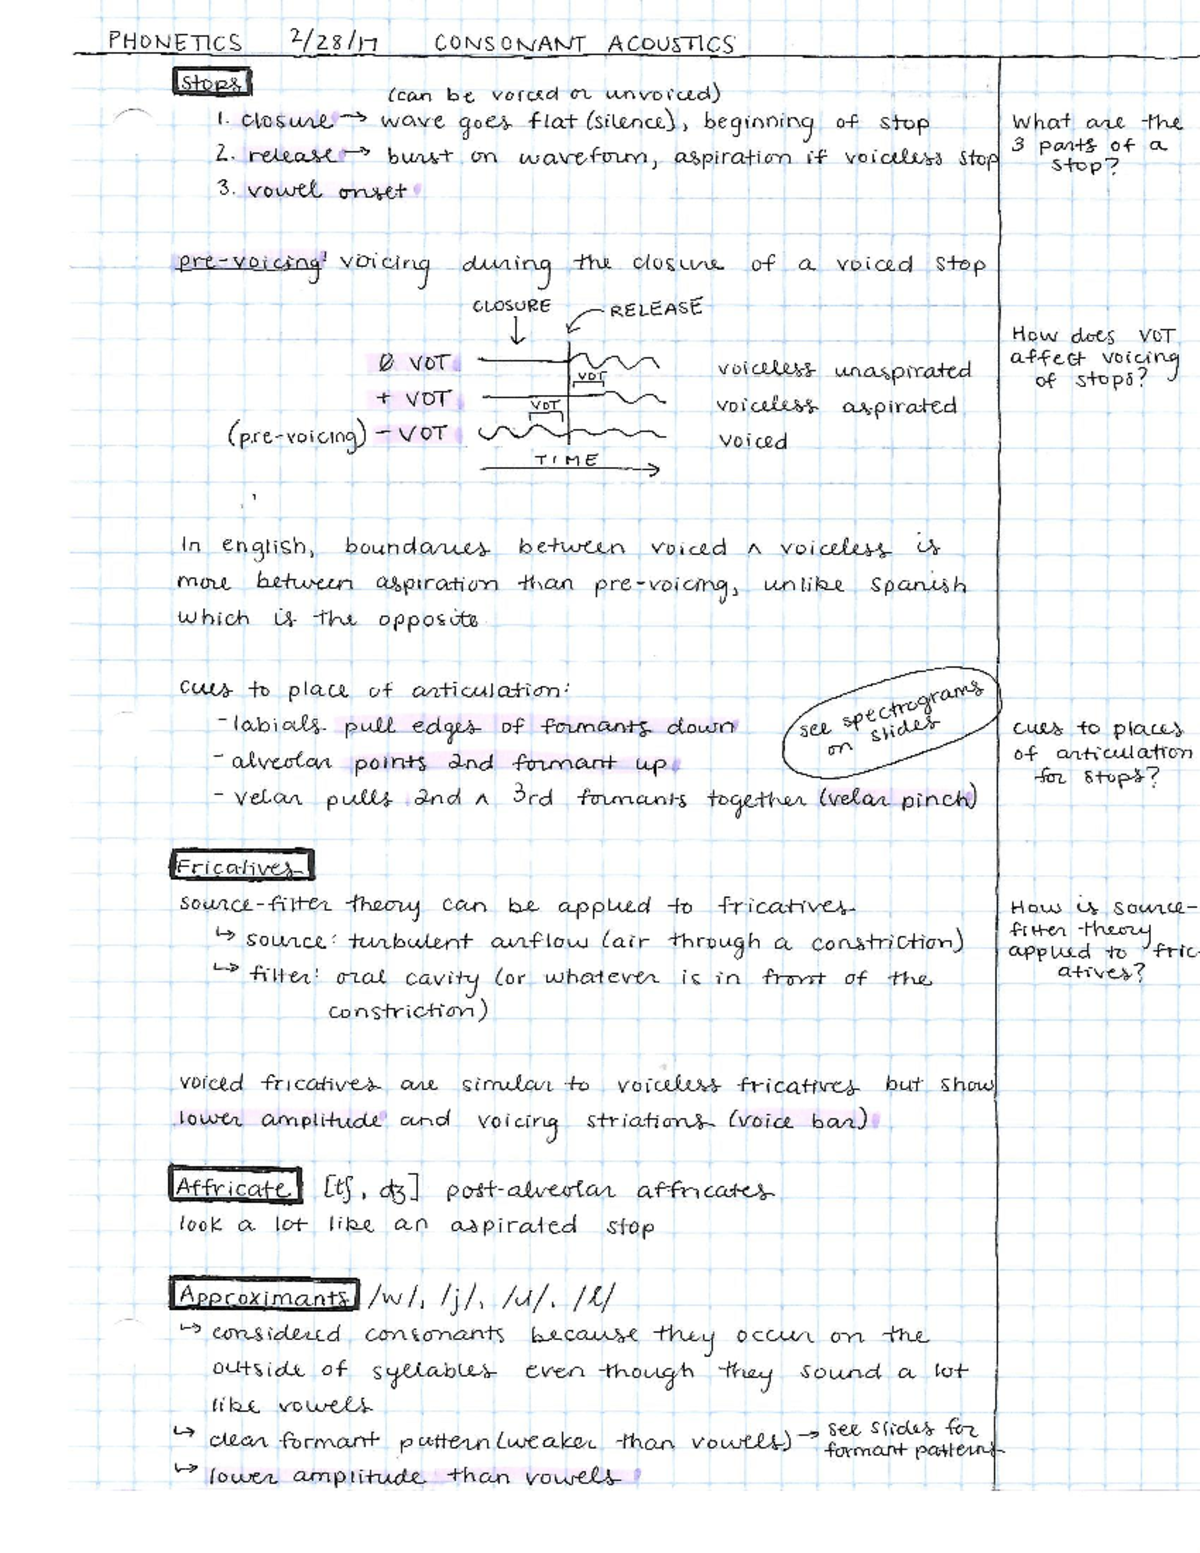 PHONETICS 2/28/17 CONSONANT ACOUSTICS
Stops
(can be voiced or unvoiced)
1. closure → wave goes flat (silence), beginning of stop
2. release → burst on waveform, aspiration if voiceless stop
3. vowel onset
What are the
3 parts of a
stop?
pre-voicing: voicing during the closure of a voiced stop
CLOSURE RELEASE
Ø VOT voiceless unaspirated
VOT
+ VOT voiceless aspirated
VOT
(pre-voicing) - VOT voiced
TIME
How does VOT
affect voicing
of stops?
In english, boundaries between voiced ∧ voiceless is
more between aspiration than pre-voicing, unlike spanish
which is the opposite
cues to place of articulation:
- labials pull edges of formants down
- alveolar points 2nd formant up
- velar pulls 2nd ∧ 3rd formants together (velar pinch)
see spectrograms
on slides
cues to places
of articulation
for stops?
Fricatives
source-filter theory can be applied to fricatives
↳ source: turbulent airflow (air through a constriction)
↳ filter: oral cavity (or whatever is in front of the
constriction)
How is source-
filter theory
applied to fric-
atives?
voiced fricatives are similar to voiceless fricatives but show
lower amplitude and voicing striations (voice bar)
Affricate [tʃ, dʒ] post-alveolar affricates
look a lot like an aspirated stop
Approximants /w/, /j/, /ɹ/, /l/
↳ considered consonants because they occur on the
outside of syllables even though they sound a lot
like vowels
↳ clear formant pattern (weaker than vowels) → see slides for
formant patterns
↳ lower amplitude than vowels